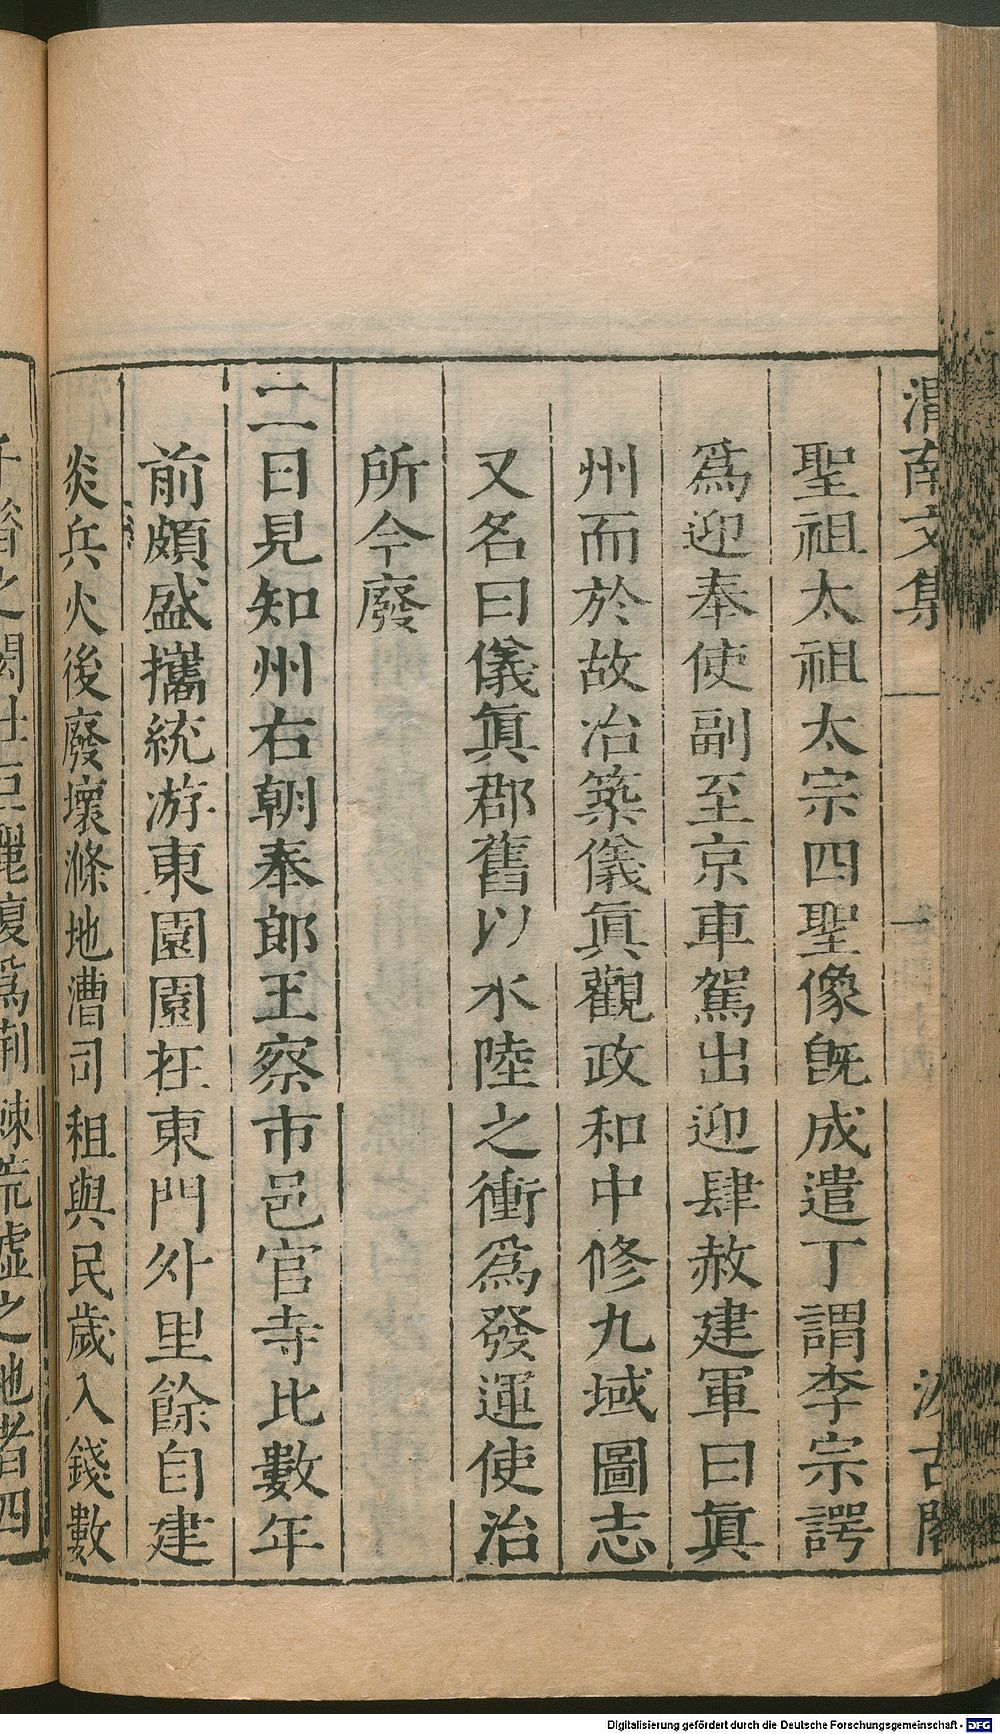 渭南文集 一 汲古閣
聖祖太祖太宗四聖像旣成遣丁謂李宗諤
爲迎奉使副至京車駕出迎肆赦建軍曰眞
州而於故冶築儀眞觀政和中修九域圖志
又名曰儀眞郡舊以水陸之衝爲發運使治
所今廢
二日見知州右朝奉郎王察市邑官寺比數年
前頗盛攜統游東園園在東門外里餘自建
炎兵火後廢壞滌地漕司租與民歲入錢數
千昔之閎壯巨麗復爲荆棘荒墟之地者四
Digitalisierung gefördert durch die Deutsche Forschungsgemeinschaft - DFG